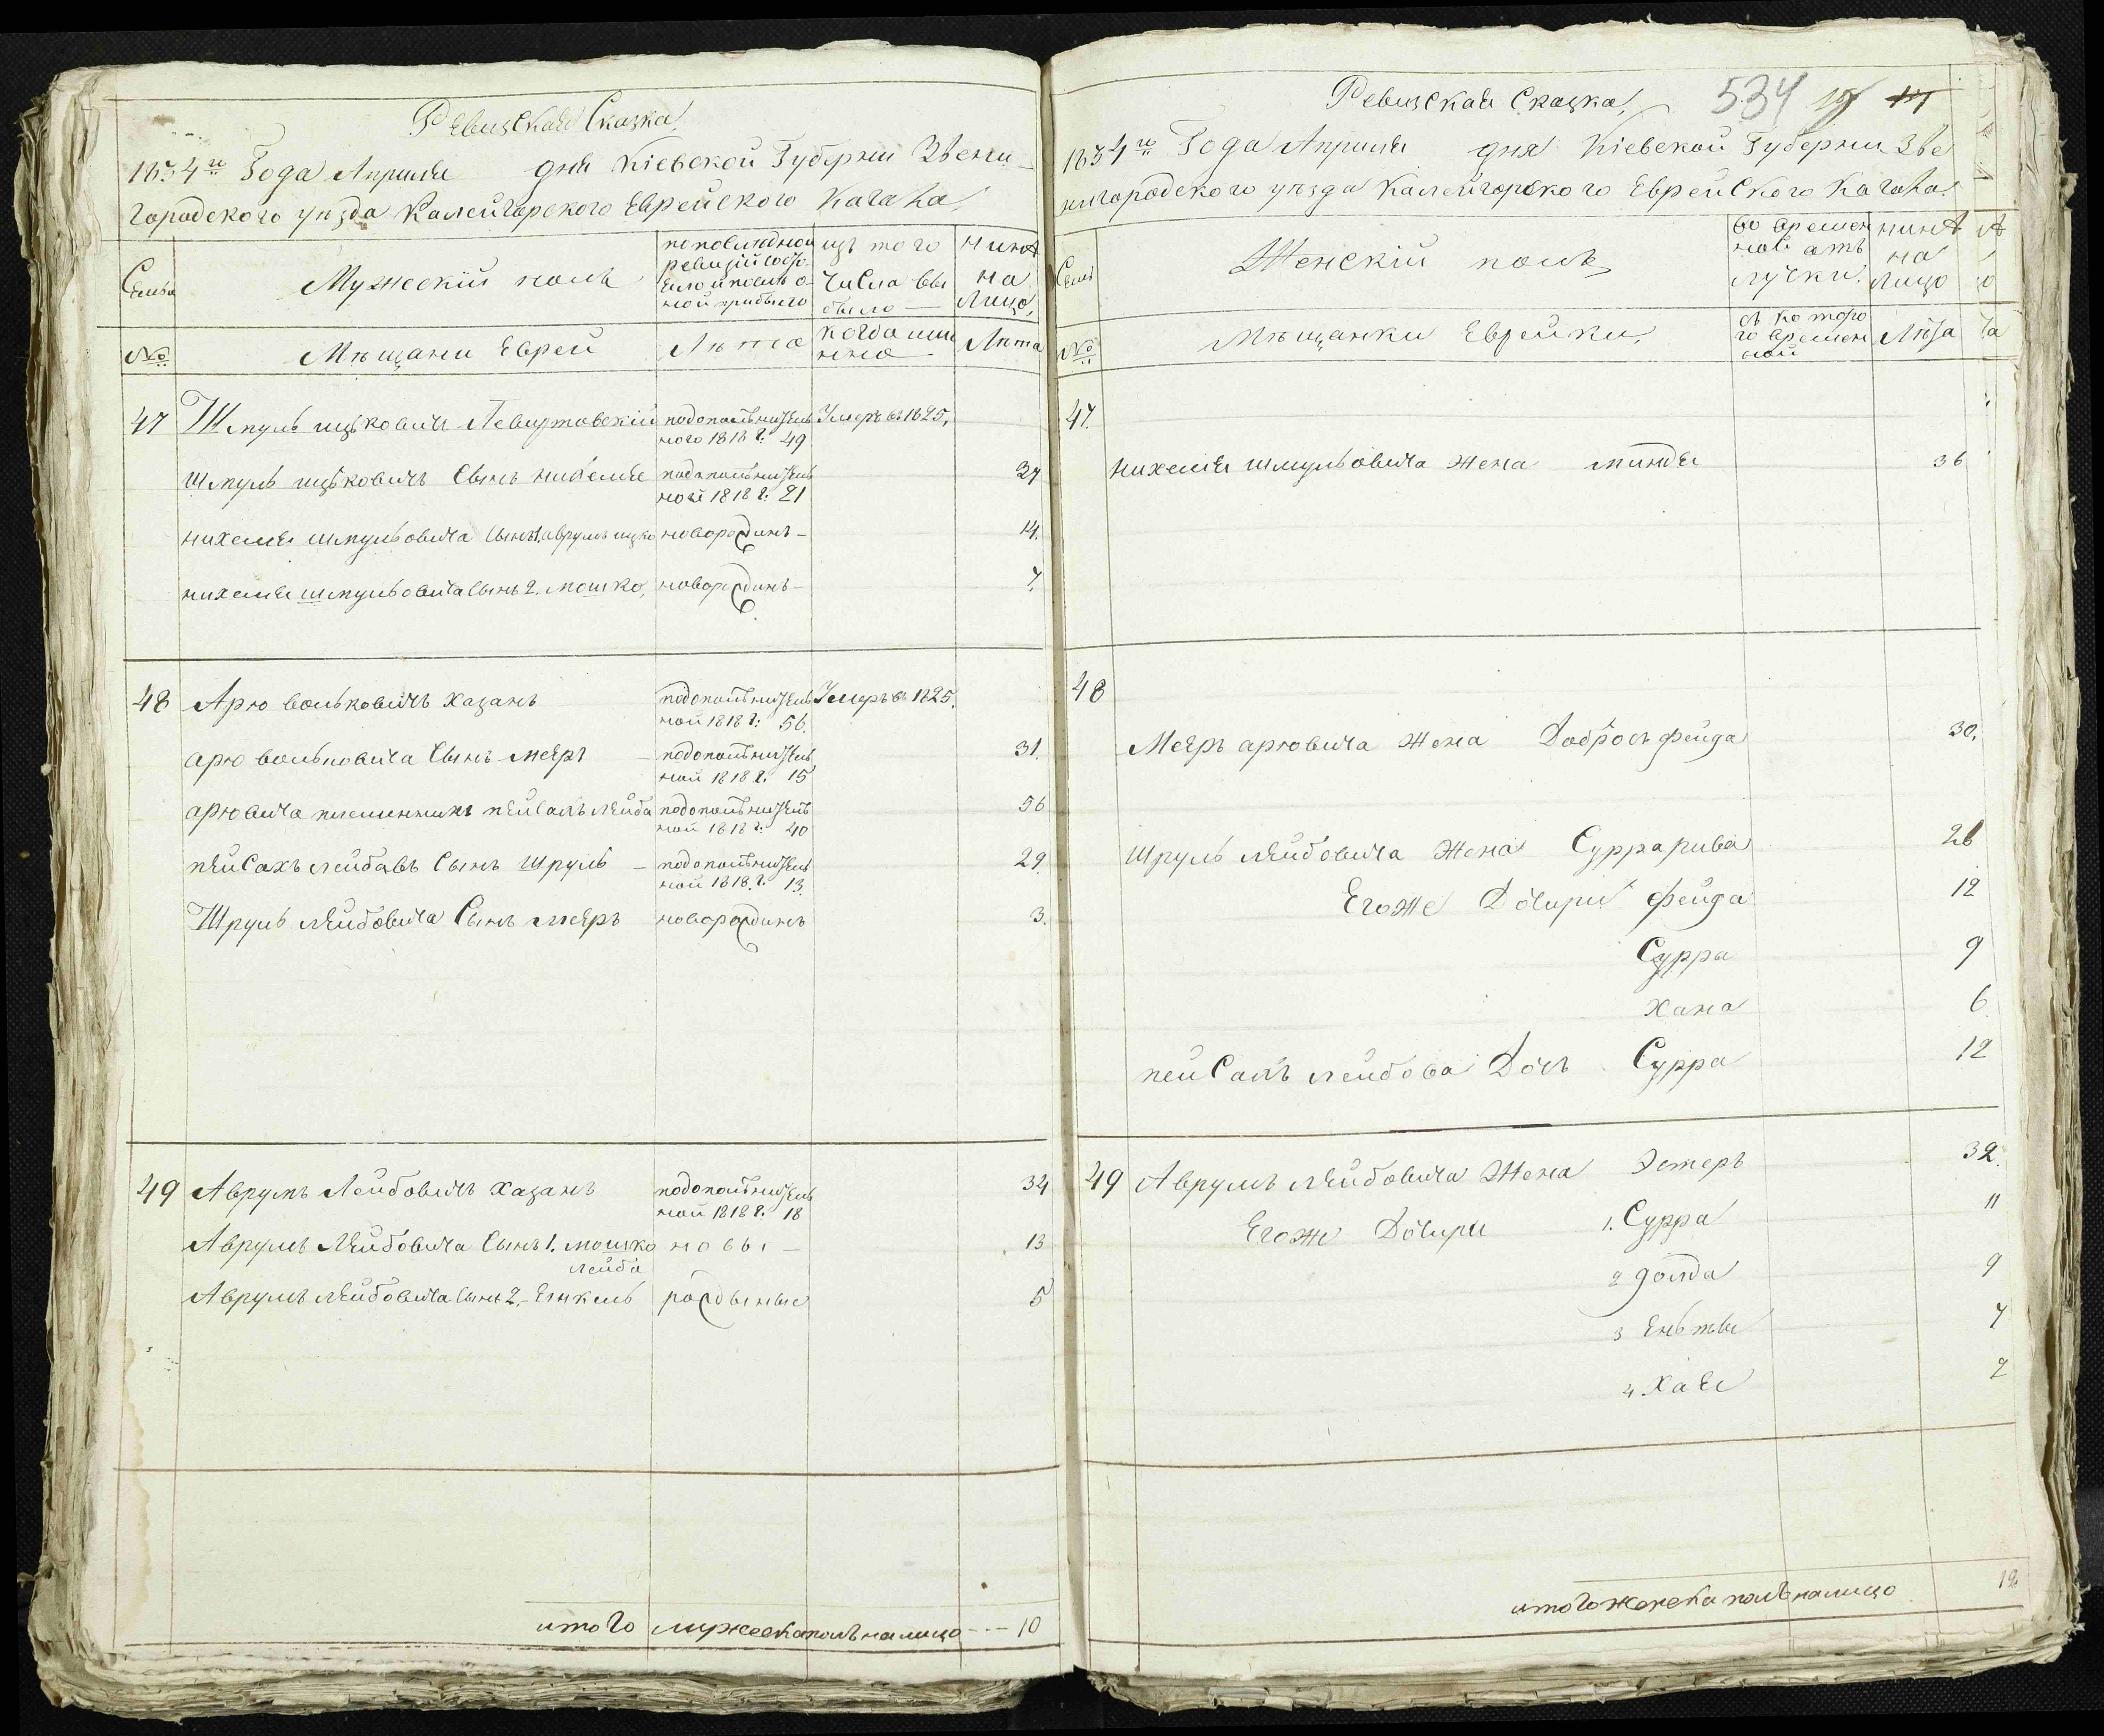 Ревизская Сказка
1834го Года Апреля дня Кіевской Губерни Звени-
городского уѣзда Калейгорского Еврейского Кагала
Семья
Мужескій полъ
по последной
ревизіи состо
яло и после о-
ной прибыло
изъ того
числа вы
было
нинѣ
на
лицо
№
Мѣщани Евреи
Лѣта
когда имя
нно
Лѣта
47 Шмуль ицьковичъ Левиртовскій подополнитель Умеръ въ 1825,
ного 1818 г: 49
Шмуль ицьковичъ Сынъ нихемье подополнитель 37
ной 1818 г: 21
нихемье шмульовича Сынъ 1. аврумъ ицко новородинъ - 14.
нихемье шмульовича Сынъ 2. мошко, новородинъ - 7.
48 Арю вольковичъ Хазанъ подополнитель Умеръ въ 1825.
ной 1818 г: 56.
арю вольковича Сынъ мееръ - подополнитель 31.
ной 1818 г. 15
арювича племенникъ пейсахъ лейба подополнитель 56
ной 1818 г: 40
пейсахъ лейбавъ Сынъ Шруль - подополнитель 29.
ной 1818. г. 13.
Шруль лейбовича Сынъ мееръ новородинъ 3.
49 Аврумъ Лейбовичъ Хазанъ подополнитель 34
ной 1818 г. 18
Аврумъ Лейбовича Сынъ 1. мошко новы - 13
лейба
Аврумъ лейбовича Сынъ 2. - Енкель родыные 5
итого мужеска полъ налицо --- 10
Ревизская Сказка, 534
1834го Года Апреля дня Кіевской Губерни Зве
нигородского уѣзда Калейгорского Еврейского Кагала.
Семья
Женскій полъ
во времен
ной отъ
лучки.
нинѣ
на
лицо
№
Мѣщанки Еврейки,
съ кото
го времен
ной
Лѣта
47.
нихемье шмульовича жена минде 36
48
Мееръ арювича жена Добросъ фейга 30.
Шруль лейбовича Жена Сурра рива 26
Егоже Дочири фейга 12
Сурра 9
Хана 6
пейсахъ лейбова Дочъ Сурра 12
49 Аврумъ лейбовича Жена Эстеръ 32.
Егоже Дочири 1. Сурра 11
2 голда 9
3 Еньтье 7
4 Хае 2
итого женска полъ налицо 12